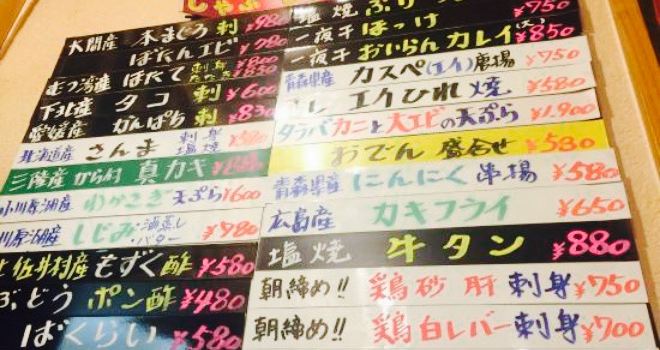 しゃぶ
大間産 本まぐろ 刺 ¥980
ぼたんエビ ¥780
むつ湾産 ほたて 刺身 ¥800
¥850
下北産 タコ 刺 ¥600
愛媛産 かんぱち 刺 ¥830
北海道産 さんま 刺身 塩焼 ¥580
三陸産 から付 真カキ
小川原湖産 わかさぎ 天ぷら ¥600
川原湖産 しじみ 酒蒸し バター ¥780
佐井村産 もずく 酢 ¥580
ぶどう ポン酢 ¥480
ばくらい ¥580
塩焼 ぶり ¥750
一夜干 ほっけ
一夜干 おいらん カレイ (大) ¥850
青森県産 カスペ(エイ) 唐揚 ¥750
エイひれ 焼 ¥580
タラバカニと大エビの天ぷら ¥1.900
おでん 盛合せ ¥580
青森県産 にんにく 串揚 ¥580
広島産 カキフライ ¥650
塩焼 牛タン ¥880
朝締め!! 鶏砂肝 刺身 ¥750
朝締め!! 鶏白レバー 刺身 ¥700